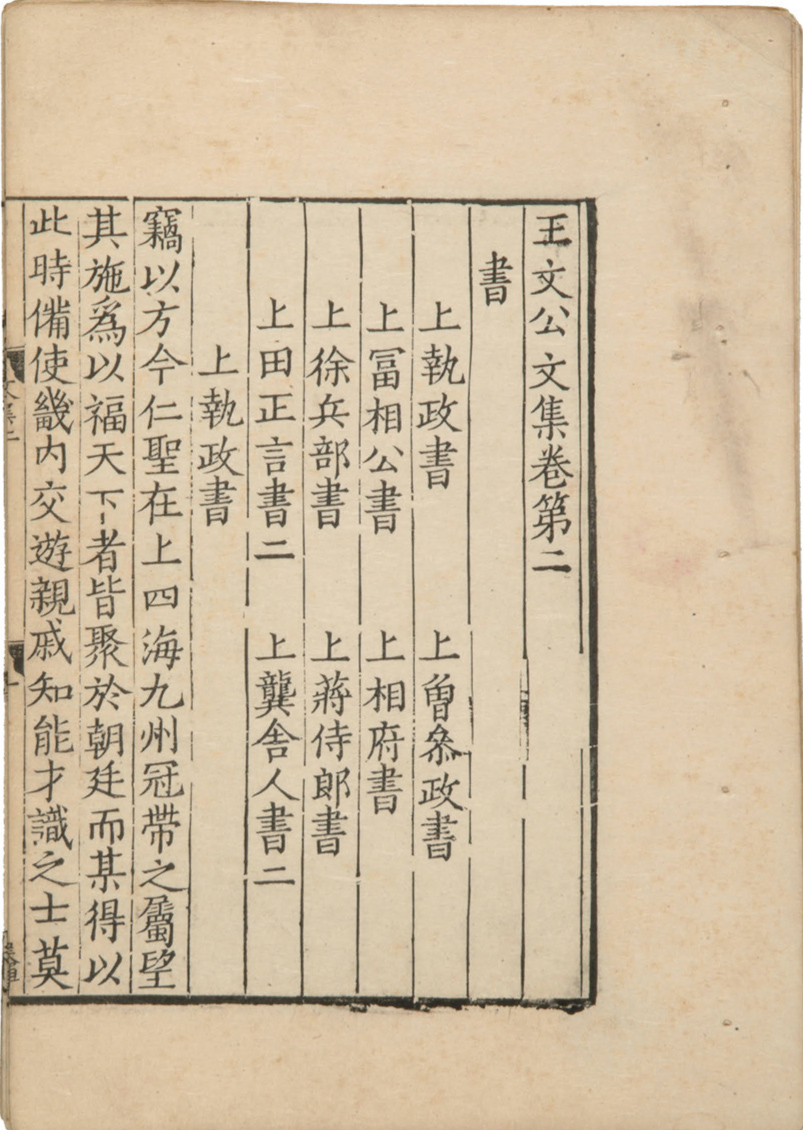 王文公文集卷第二
書
上執政書　上曾叅政書
上冨相公書　上相府書
上徐兵部書　上蔣侍郎書
上田正言書二　上龔舍人書二
上執政書
竊以方今仁聖在上四海九州冠帶之屬望
其施爲以福天下者皆聚於朝廷而某得以
此時備使畿内交遊親戚知能才識之士莫